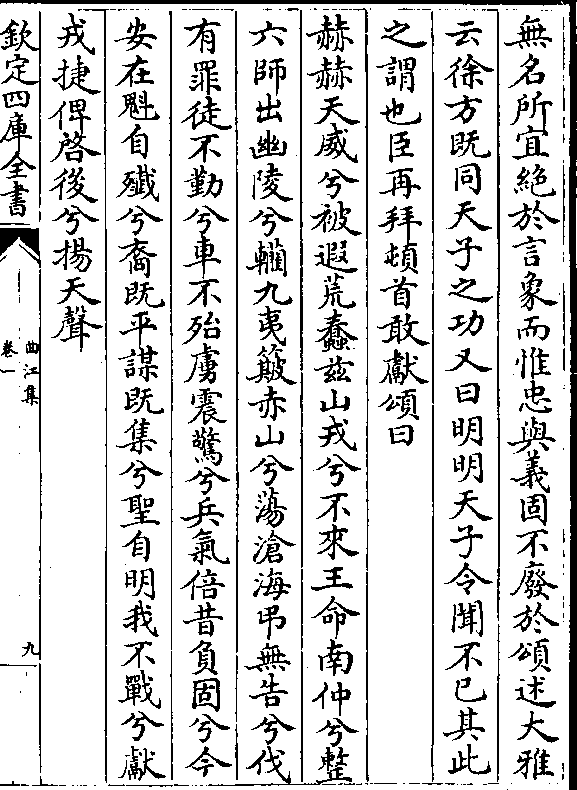 無名所宜絶於言象而惟忠與義固不廢於頌述大雅
云徐方既同天子之功又曰明明天子令聞不已其此
之謂也臣再拜頓首敢獻頌曰
赫赫天威兮被遐荒蠢兹山戎兮不來王命南仲兮整
六師出幽陵兮轥九夷簸赤山兮蕩滄海弔無告兮伐
有罪徒不勤兮車不殆虜震驚兮兵氣倍昔負固兮今
安在魁自殲兮裔既平謀既集兮聖自明我不戰兮獻
戎捷俾啓後兮揚天聲
欽定四庫全書
曲江集
卷一
九